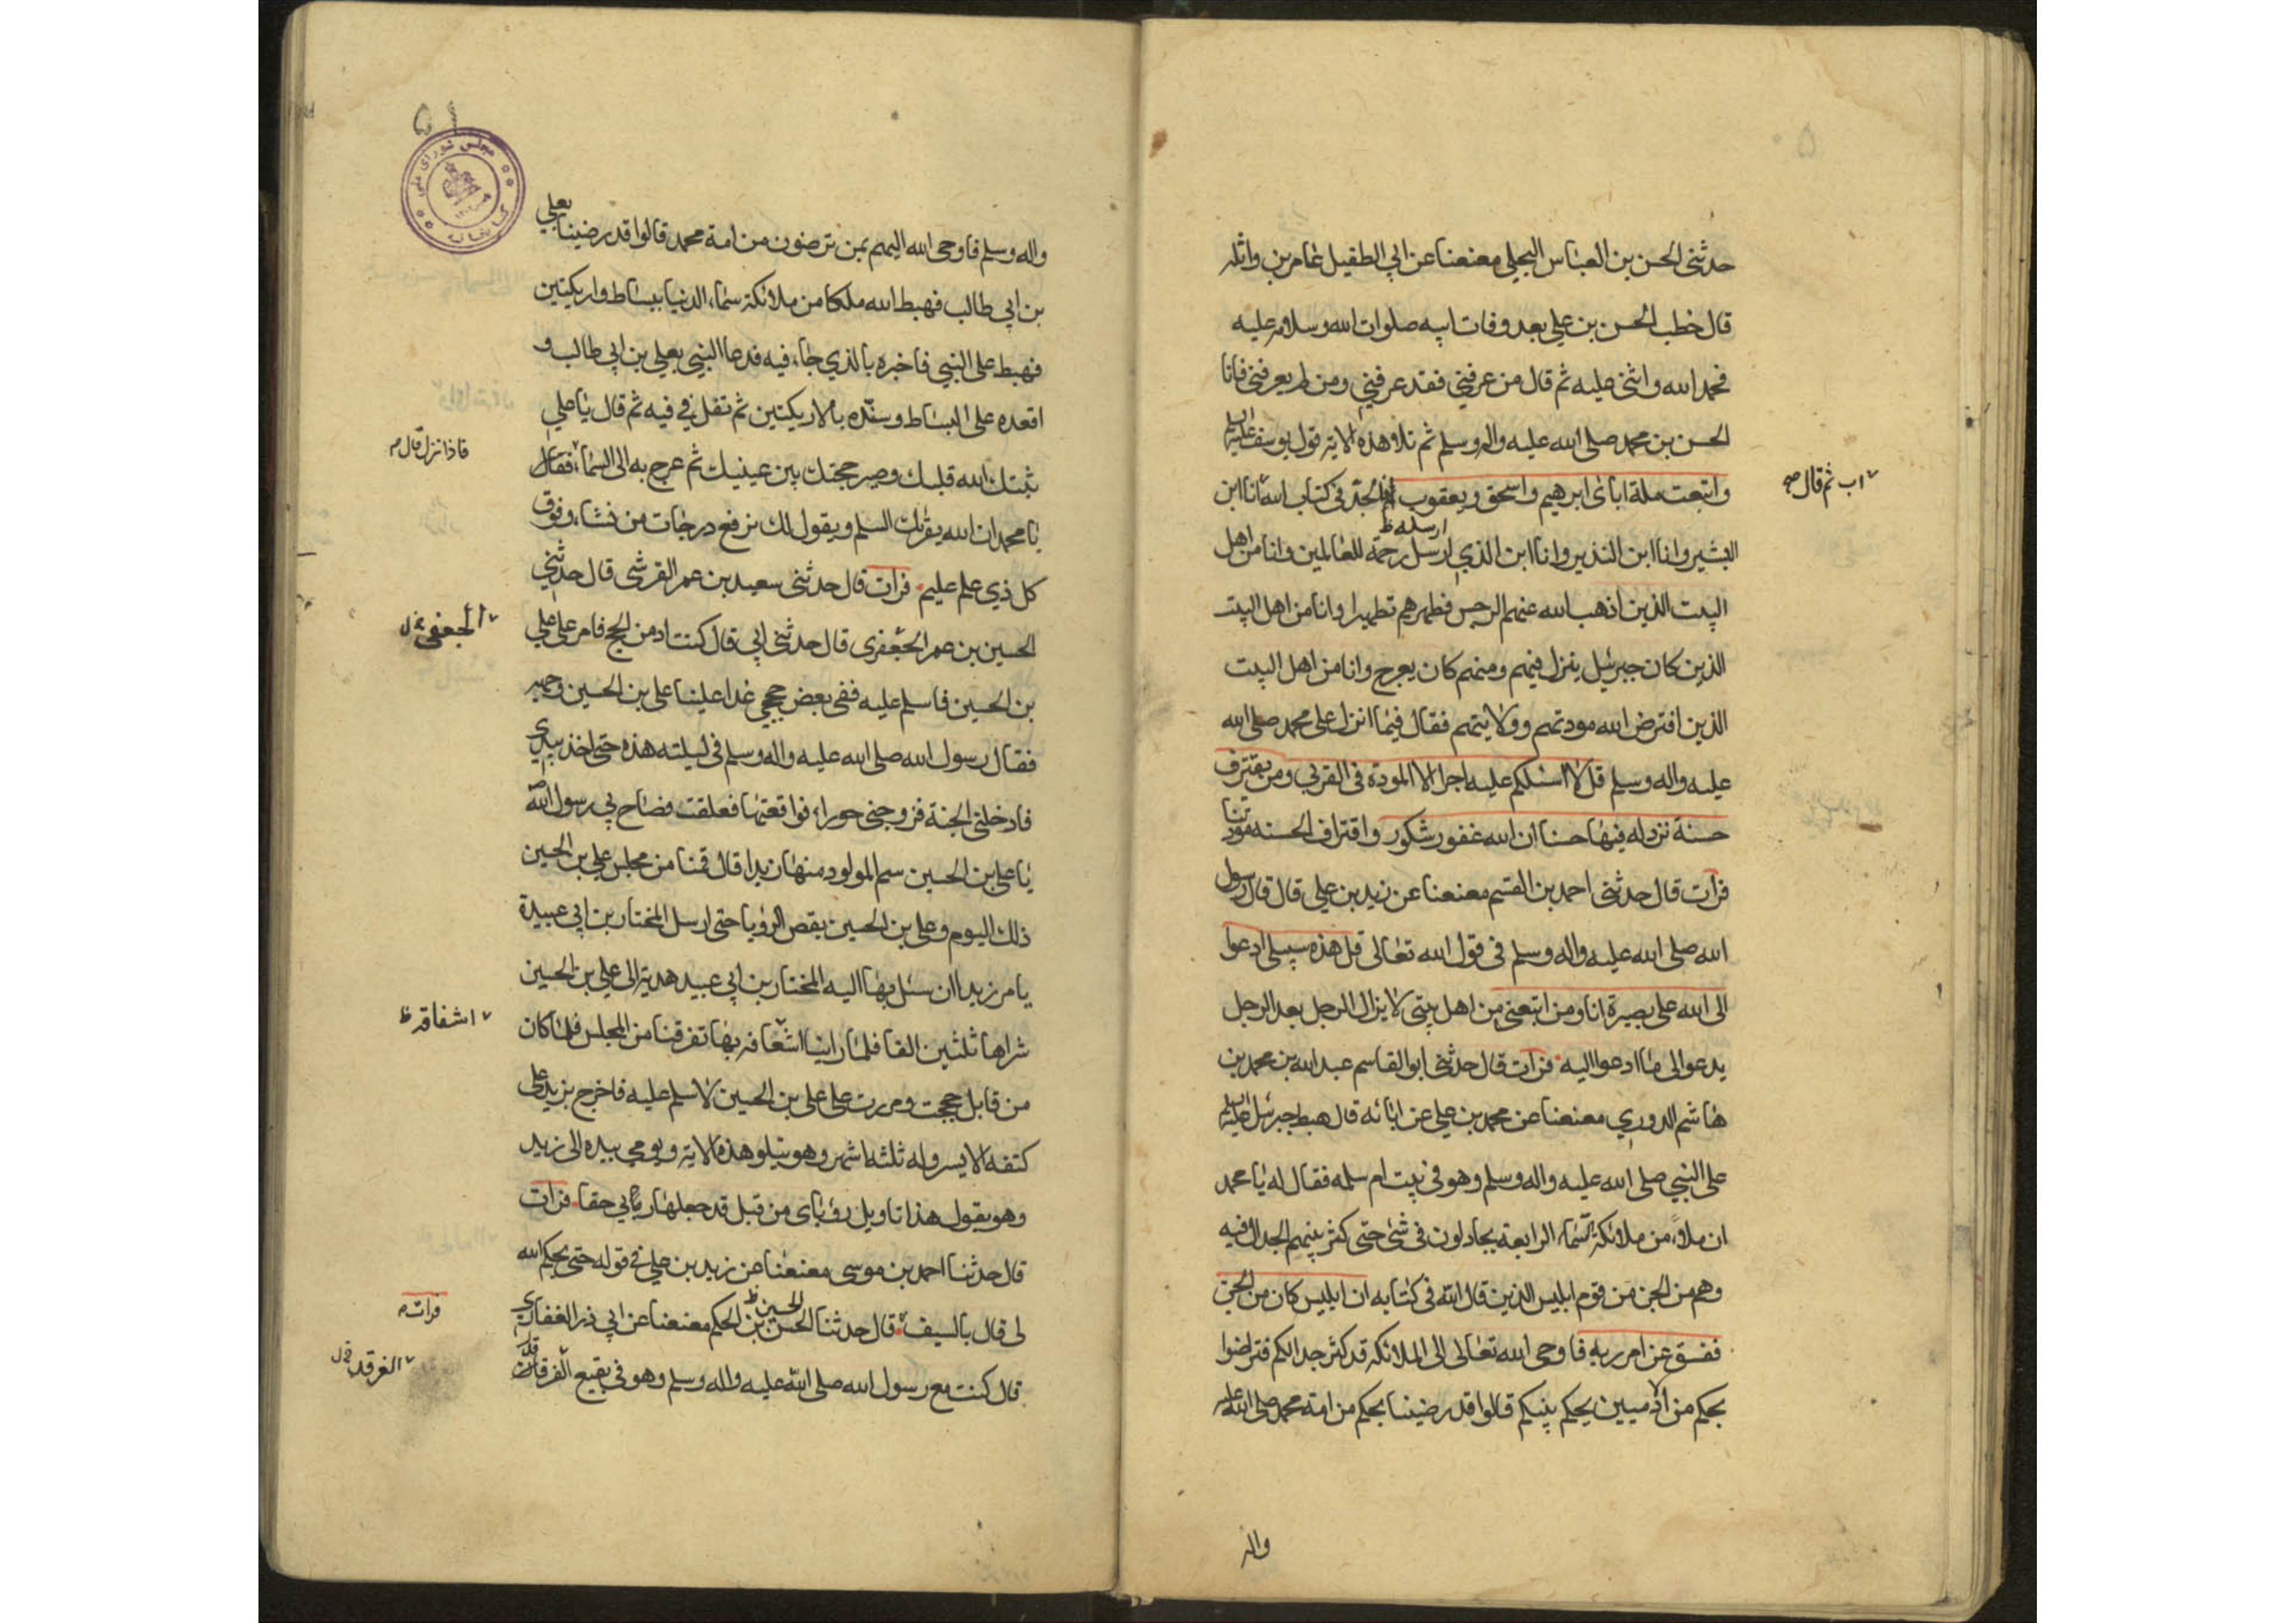 ٥٠
حدثنى الحسن بن العباس البجلى معنعنا عن ابي الطفيل عامر بن واثله
قال خطب الحسن بن علي بعد وفات ابيه صلوات الله وسلامه عليه
فحمد الله واثنى عليه ثم قال من عرفني فقد عرفني ومن لم يعرفني فانا
الحسن بن محمد صلى الله عليه واله وسلم ثم تلاوهذه الاية قول يوسف عليه السلم
واتبعت ملة اباى ابرهيم واسحق ويعقوب الجد فى كتاب الله انا ابن
اب ثم قال
البشير وانا ابن النذير وانا ابن الذي ارسل رحمة للعالمين وانا من اهل
ارسله ظ
البيت الذين اذهب الله عنهم الرجس فطهرهم تطهيرا وانا من اهل البيت
الذين كان جبرئيل ينزل فيهم ومنهم كان يعرج وانا من اهل البيت
الذين افترض الله مودتهم وولايتهم فقال فيما انزل على محمد صلى الله
عليه واله وسلم قل لا اسئلكم عليه اجرا الا المودة فى القربى ومن يقترف
حسنة نزدله فيها حسنا ان الله غفور شكور واقتراف الحسنه مودتنا
فرات قال حدثنى احمد بن القسم معنعنا عن زيد بن علي قال قال رسول
الله صلى الله عليه واله وسلم فى قول الله تعالى قل هذه سبيلى ادعوا
الى الله على بصيرة انا ومن اتبعنى من اهل بيتى لا يزال الرجل بعد الرجل
يدعوالى ما ادعوا اليه فرات قال حدثنى ابوالقاسم عبدالله بن محمد بن
هاشم الدوري معنعنا عن محمد بن علي عن ابائه قال هبط جبرئيل عليه السلم
على النبي صلى الله عليه واله وسلم وهو فى بيت ام سلمه فقال له يا محمد
ان ملاء من ملائكة السماء الرابعة يجادلون فى شئ حتى كثر بينهم الجدال فيه
وهم من الجن من قوم ابليس الذين قال الله فى كتابه ان ابليس كان من الجن
ففسق عن امر ربه فاوحى الله تعالى الى الملائكة قد كثر جدالكم فتراضوا
بحكم من الادميين يحكم بينكم قالوا قد رضينا بحكم من امة محمد صلى الله عليه
واله
٥١
مجلس شوراى ملى
كتابخانه
واله وسلم فاوحى الله اليهم بمن ترضون من امة محمد قالوا قد رضينا بعلي
بن ابي طالب فهبط الله ملكا من ملائكة سماء الدنيا ببساط واريكتين
فهبط على النبي فاخبره بالذي جاء فيه فدعا النبي بعلي بن ابي طالب و
اقعده على البساط وسنّده بالاريكتين ثم تفل في فيه ثم قال يا علي
ثبتك الله قلبك وصير حجتك بين عينيك ثم عرج به الى السماء فقال
فاذا نزل قال م
يا محمد ان الله يقرئك السلم ويقول لك نرفع درجات من نشاء وفوق
كل ذي علم عليم فرات قال حدثنى سعيد بن عمر القرشى قال حدثني
الحسين بن عمر الجعفرى قال حدثنى ابي قال كنت ادمن الحج فامر على علي
الجعفى
بن الحسين فاسلم عليه ففى بعض حججي غدا علينا على بن الحسين وجهه
فقال رسول الله صلى الله عليه واله وسلم فى ليلته هذه حتى اخذ بيدي
فادخلنى الجنة فزوجنى حوراء فواقعتها فعلقت فصاح بي رسول الله
يا على بن الحسين سم المولود منها زيدا قال قمنا من مجلس علي بن الحسين
ذلك اليوم وعلى بن الحسين يقص الرؤيا حتى ارسل المختار بن ابي عبيدة
يامر زيدا ان سئل بها اليه المختار بن ابي عبيد هدية الى علي بن الحسين
شراها ثلثين الفا فلما راينا اشعافه بها تفرقنا من المجلس فلما كان
اشفاقه ظ
من قابل حججت ومررت على على بن الحسين لاسلم عليه فاخرج بزيد على
كتفه الايسر وله ثلثة اشهر وهو يتلو هذه الاية ويومي بيده الى زيد
وهو يقول هذا تاويل رؤياى من قبل قد جعلها ربي حقا فرات
قال حدثنا احمد بن موسى معنعنا عن زيد بن علي في قوله حتى يحكم الله
لى قال بالسيف قال حدثنا الحسن بن الحكم معنعنا عن ابي ذر الغفاري
الحسين ظ
فرات م
قال كنت مع رسول الله صلى الله عليه واله وسلم وهو فى بقيع الفرقان
الغرقد